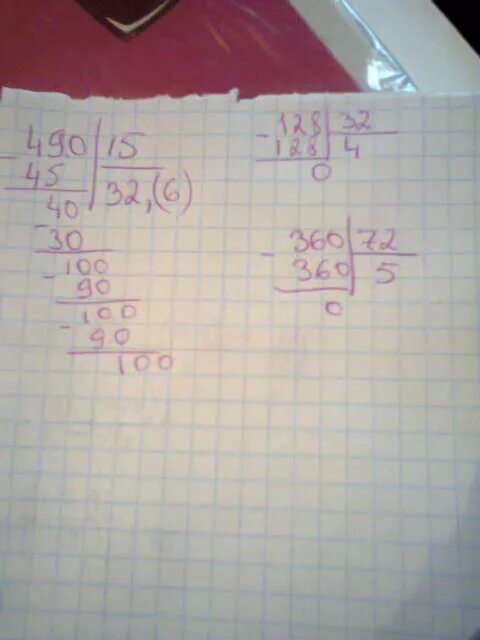 490 | 15
- 45
32,(6)
40
- 30
100
- 90
100
- 90
100
- 128 | 32
128 | 4
0
- 360 | 72
360 | 5
0